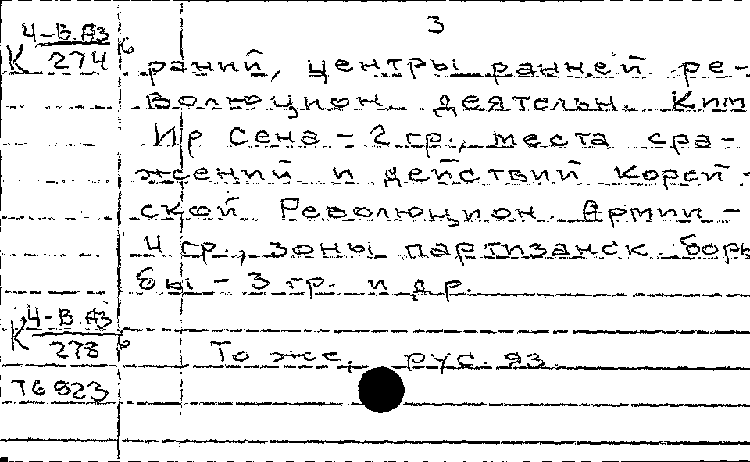 3
К 4-В.Аз 6
274
раний, центры ранней ре-
волюцион. деятельн. Ким
Ир Сена – 2 гр., места сра-
жений и действий Корей-
ской Революцион. Армии –
4 гр., зоны партизанск. борь
бы – 3 гр. и др.
К 4-В.Аз 6
278
То же, рус. яз.
Т6923